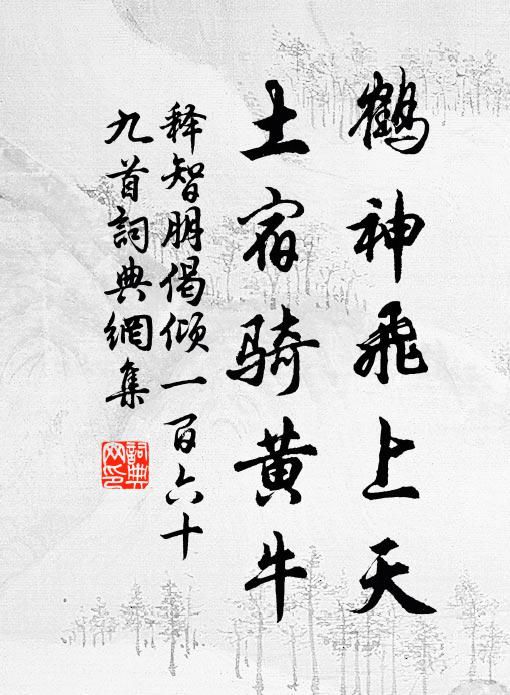 鹤神飛上天
土宿骑黄牛
释智朋偈倾一百六十
九首詞典網集
詞典
网印